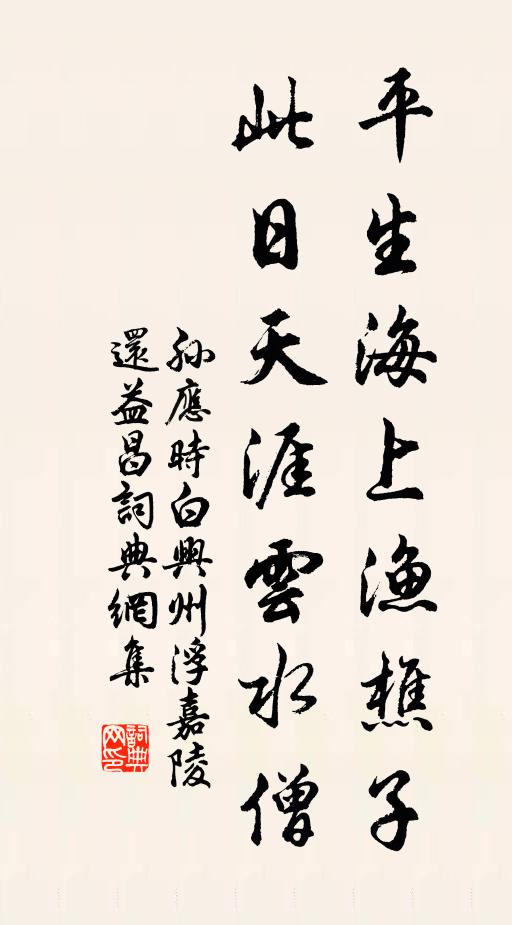 平生海上漁樵子
此日天涯雲水僧
孫應時白興州浮嘉陵
還益昌詞典網集
詞典網印